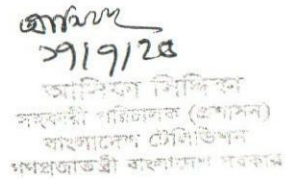 ১৭/৭/২৪
আসিফা সিদ্দিকা
সহকারী পরিচালক (প্রশাসন)
বাংলাদেশ টেলিভিশন
গণপ্রজাতন্ত্রী বাংলাদেশ সরকার